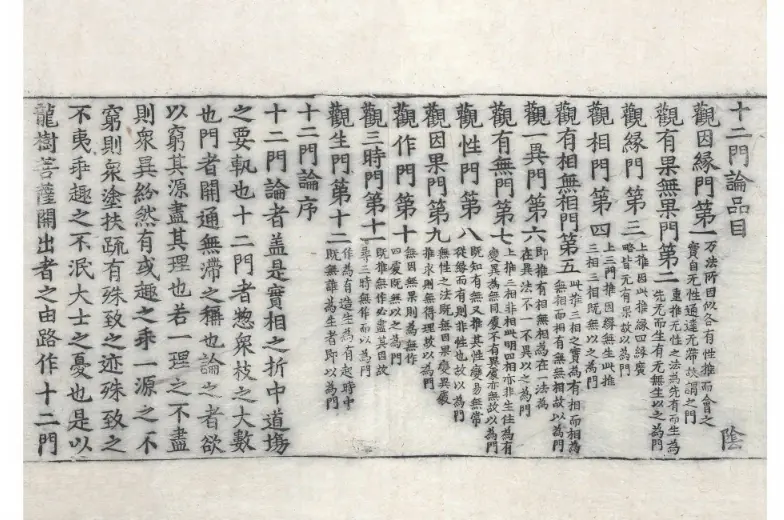 十二門論品目 陰
觀因緣門第一 万法所因似各有性推而會之
實自无性通達无滯故謂之門
觀有果無果門第二 重推无性之法為先有而生為
先无而生有无無生以之為門
觀緣門第三 上推因此推緣四緣廣
略皆无有果故以為門
觀相門第四 上三門推因緣無生此推
三相三相既無以之為門
觀有相無相門第五 此推三相之實為有相而相為
無相而相有無無相故以為門
觀一異門第六 即推有相無相為在一法為
在異法不一不異以之為門
觀有無門第七 上推三相非相此明四相亦非生住為有
變異為無同處不有異處亦無故以為門
觀性門第八 既知有無又推其性變易無常
從緣而有則非性也故以為門
觀因果門第九 無性之法既無因果變異處
推求則無得理故以為門
觀作門第十 無因無果則為無作
四處既無以之為門
觀三時門第十一 既推無作必盡其因故
尋三時無作而以為門
觀生門第十二 作為有造生為有起時中
既無誰為生者即以為門
十二門論序
十二門論者盖是實相之折中道塲
之要軌也十二門者惣衆枝之大數
也門者開通無滯之稱也論之者欲
以窮其源盡其理也若一理之不盡
則衆異紛然有或趣之乖一源之不
窮則衆塗扶疏有殊致之迹殊致之
不夷乖趣之不泯大士之憂也是以
龍樹菩薩開出者之由路作十二門